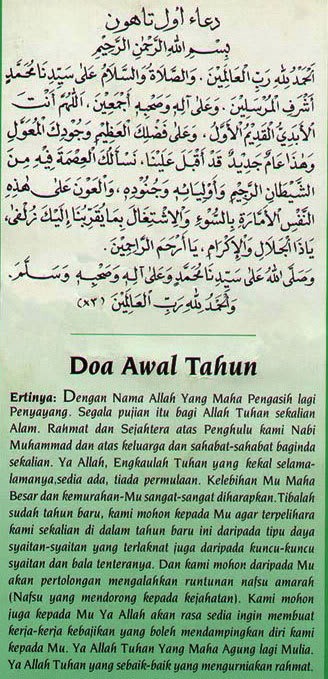 دعاء اول تاهون
بِسْمِ اللهِ الرَّحْمٰنِ الرَّحِيْمِ
اَلْحَمْدُ لِلّٰهِ رَبِّ الْعَالَمِيْنَ. وَالصَّلَاةُ وَالسَّلَامُ عَلٰى سَيِّدِنَا مُحَمَّدٍ
أَشْرَفِ الْمُرْسَلِيْنَ. وَعَلٰى آلِهِ وَصَحْبِهِ أَجْمَعِيْنَ. اَللّٰهُمَّ أَنْتَ
الْأَبَدِيُّ الْقَدِيْمُ الْأَوَّلُ. وَعَلٰى فَضْلِكَ الْعَظِيْمِ وَجُوْدِكَ الْمُعَوَّلُ
وَهٰذَا عَامٌ جَدِيْدٌ قَدْ أَقْبَلَ عَلَيْنَا. نَسْأَلُكَ الْعِصْمَةَ فِيْهِ مِنَ
الشَّيْطَانِ الرَّجِيْمِ وَأَوْلِيَائِهِ وَجُنُوْدِهِ. وَالْعَوْنَ عَلٰى هٰذِهِ
النَّفْسِ الْأَمَّارَةِ بِالسُّوْءِ وَالْاِشْتِغَالَ بِمَا يُقَرِّبُنَا إِلَيْكَ زُلْفٰى.
يَا ذَا الْجَلَالِ وَالْإِكْرَامِ. يَا أَرْحَمَ الرَّاحِمِيْنَ.
وَصَلَّى اللهُ عَلٰى سَيِّدِنَا مُحَمَّدٍ وَعَلٰى آلِهِ وَصَحْبِهِ وَسَلَّمَ.
وَالْحَمْدُ لِلّٰهِ رَبِّ الْعَالَمِيْنَ (×٣)
Doa Awal Tahun
Ertinya: Dengan Nama Allah Yang Maha Pengasih lagi
Penyayang. Segala pujian itu bagi Allah Tuhan sekalian
Alam. Rahmat dan Sejahtera atas Penghulu kami Nabi
Muhammad dan atas keluarga dan sahabat-sahabat baginda
sekalian. Ya Allah, Engkaulah Tuhan yang kekal selama-
lamanya,sedia ada, tiada permulaan. Kelebihan Mu Maha
Besar dan kemurahan-Mu sangat-sangat diharapkan.Tibalah
sudah tahun baru, kami mohon kepada Mu agar terpelihara
kami sekalian di dalam tahun baru ini daripada tipu daya
syaitan-syaitan yang terlaknat juga daripada kuncu-kuncu
syaitan dan bala tenteranya. Dan kami mohon daripada Mu
akan pertolongan mengalahkan runtunan nafsu amarah
(Nafsu yang mendorong kepada kejahatan). Kami mohon
juga kepada Mu Ya Allah akan rasa sedia ingin membuat
kerja-kerja kebajikan yang boleh mendampingkan diri kami
kepada Mu. Ya Allah Tuhan Yang Maha Agung lagi Mulia.
Ya Allah Tuhan yang sebaik-baik yang mengurniakan rahmat.